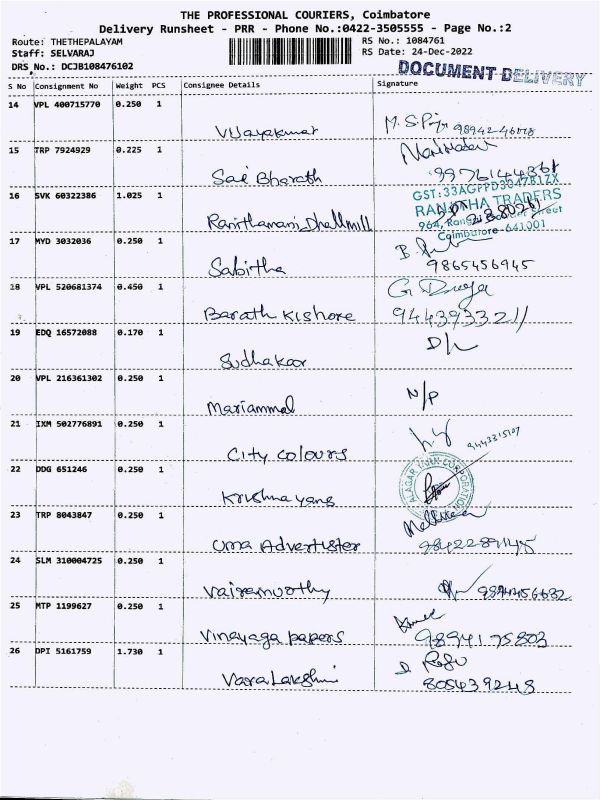 THE PROFESSIONAL COURIERS, Coimbatore
Delivery Runsheet - PRR - Phone No.:0422-3505555 - Page No.:2
Route: THETHEPALAYAM RS No.: 1084761
Staff: SELVARAJ RS Date: 24-Dec-2022
DRS No.: DCJB108476102 DOCUMENT DELIVERY
S No Consignment No Weight PCS Consignee Details Signature
14 VPL 400715770 0.250 1
Vijayakumar M.S.
15 TRP 7924929 0.225 1
Sai Bharath
16 SVK 60322386 1.025 1
Ranithamani Dhallmill
RANJITHA TRADERS
Coimbatore-641001
17 MYD 3032036 0.250 1
Sabitha 9865456945
18 VPL 520681374 0.450 1
G. Durga
Barath Kishore 9443933211
19 EDQ 16572088 0.170 1
Sudhakar D/L
20 VPL 216361302 0.250 1
Mariammal N/P
21 IXM 502776891 0.250 1
City colours
22 DDG 651246 0.250 1
Krishna yans
23 TRP 8043847 0.250 1
Uma Advertister
24 SLM 310004725 0.250 1
Vairamurthy
25 MTP 1199627 0.250 1
Vinayaga papers 9894175803
26 DPI 5161759 1.730 1
Vara Lakshmi 805439248